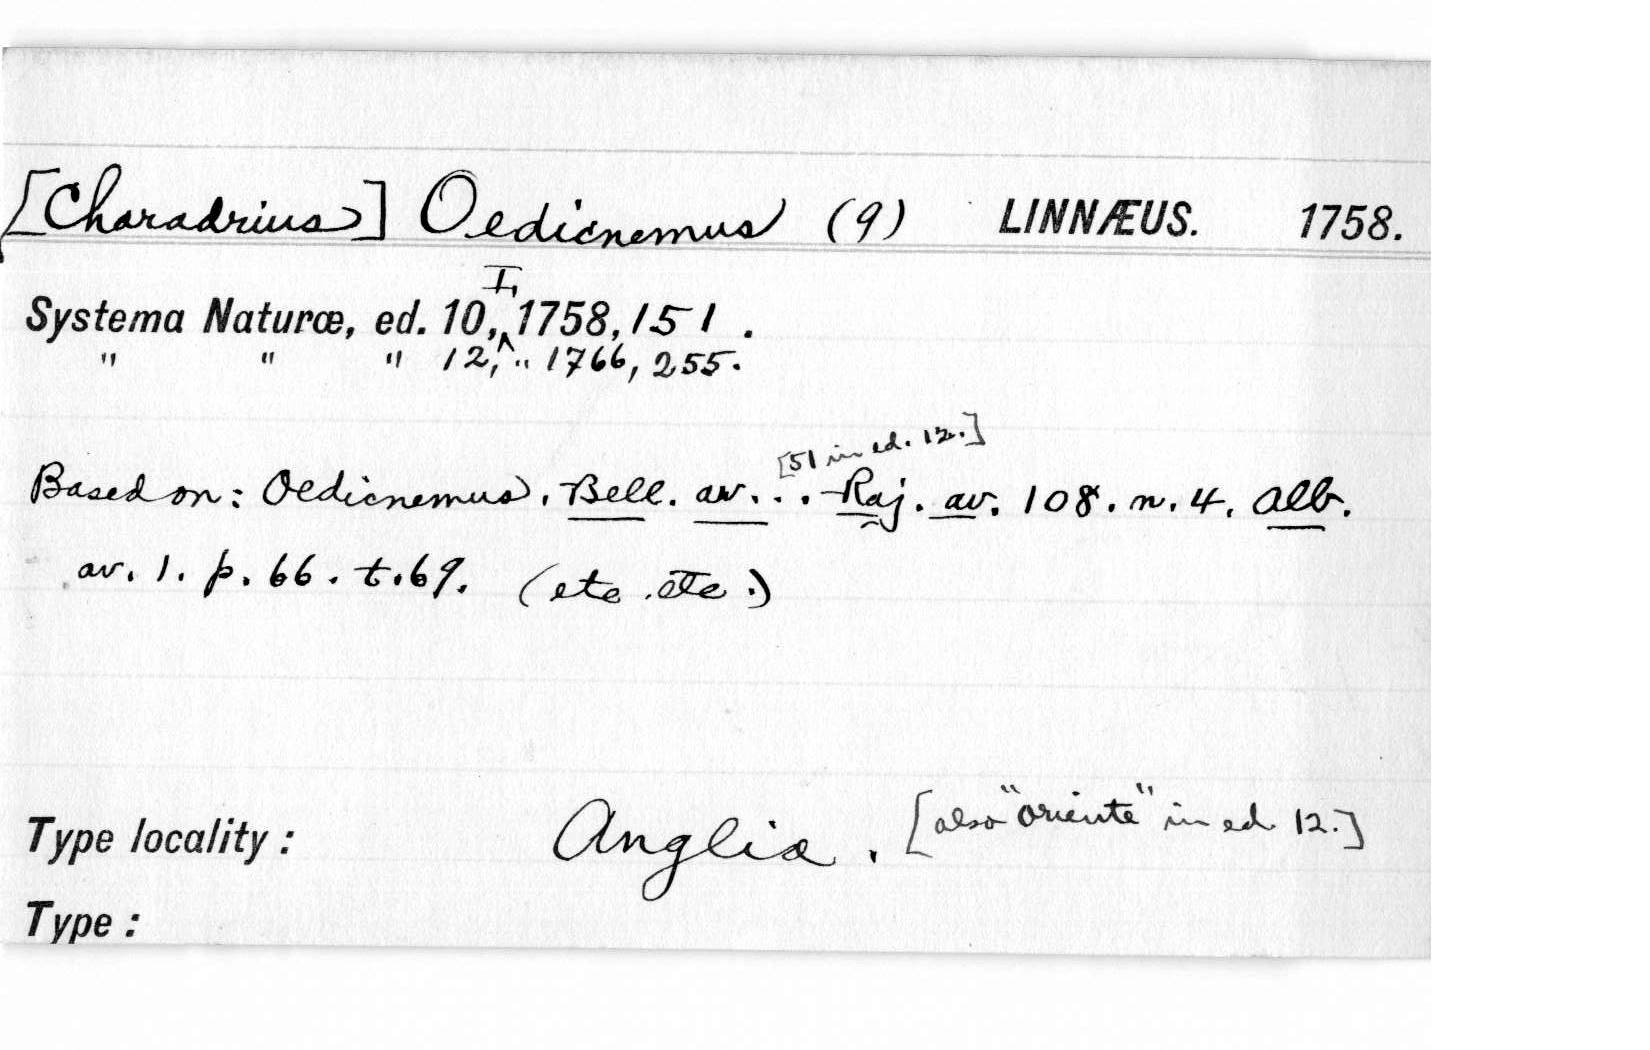 [Charadrius] Oedicnemus (9) LINNÆUS. 1758.
I,
Systema Naturæ, ed. 10, 1758, 151 .
" " " 12, " 1766, 255.
[51 in ed. 12.]
Based on: Oedicnemus. Bell. av. . . Raj. av. 108. n. 4. Alb.
av. 1. p. 66. t. 69. (etc. etc.)
Type locality : Anglia. [also "oriente" in ed. 12.]
Type :